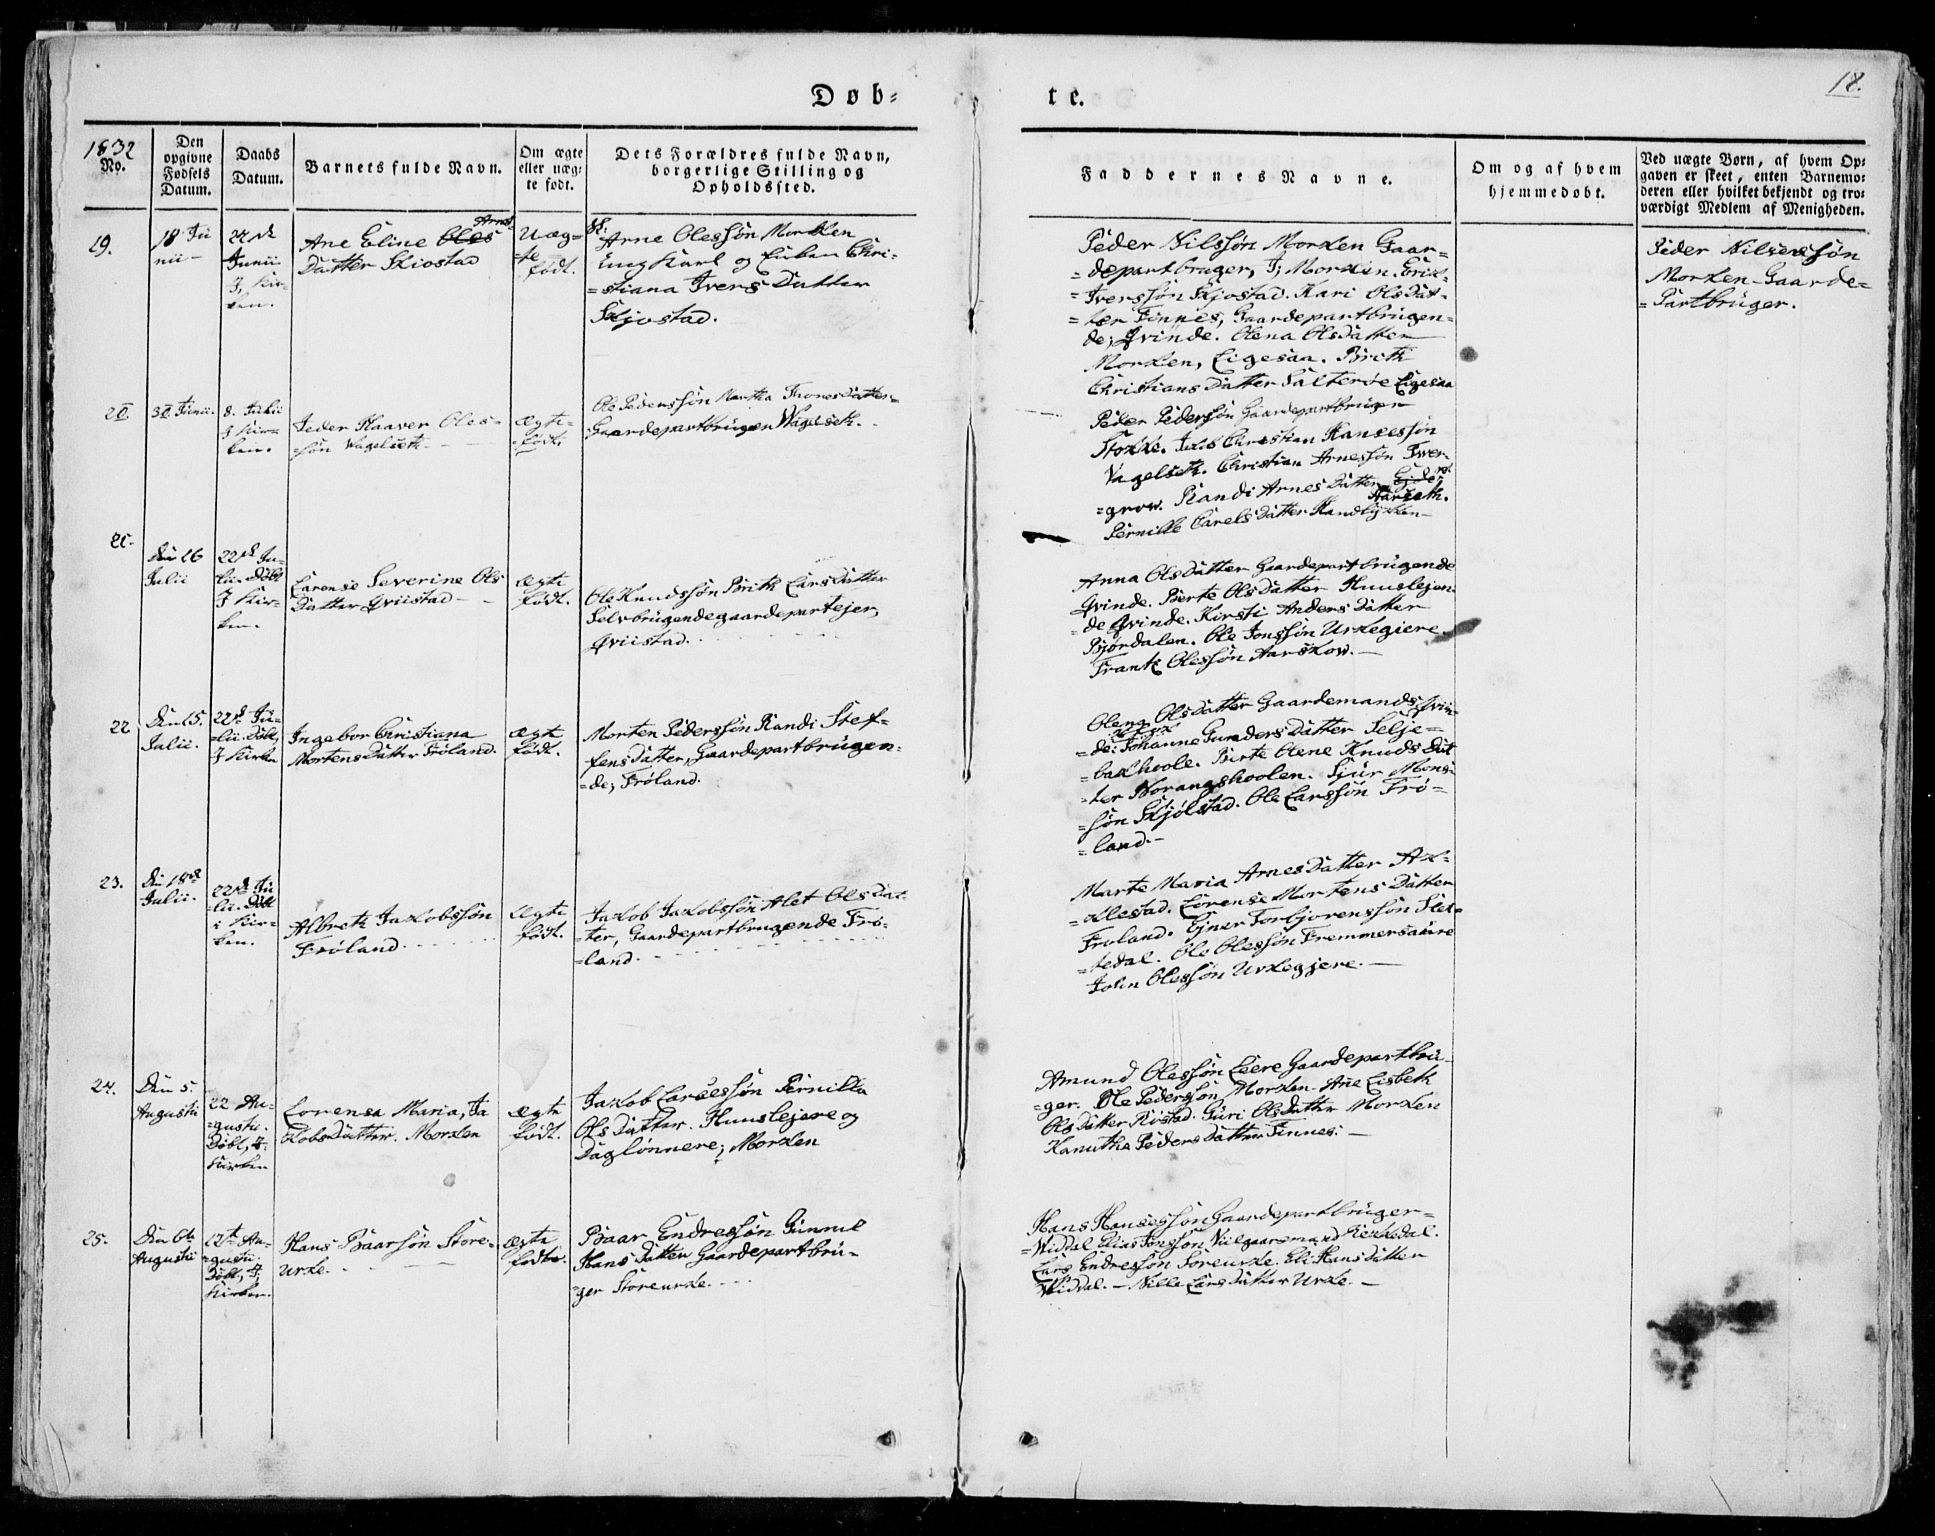 18.
Døb-
te.
1832
No.
Den
opgivne
Fødsels
Datum.
Daabs
Datum.
Barnets fulde Navn.
Om ægte
eller uæg-
te født.
Dets Forældres fulde Navn,
borgerlige Stilling og
Opholdssted.
Faddernes Navne.
Om og af hvem
hjemmedøbt.
Ved uægte Børn, af hvem Op-
gaven er skeet, enten Barnemo-
deren eller hvilket bekjendt og tro-
værdigt Medlem af Menigheden.
19.
18 Ju
nii
22de
Junii
J, Kir-
ken.
Arnes
Ane Eline Oles
Datter Skiostad
Uæg-
te
født.
Arne Olessøn Morken
ungkarl og Chri-
=stiana Ivers Datter
Skjostad.
Peder Nilssøn Morken Gaar-
=departbruger, J; Morken. Erik
=Iverssøn Skjostad. Kari Olsdat-
=ter Finnes, Gaardepartbrugen-
de, Qvinde. Olena Olsdatter
Morken, Ligesaa. Brith
Christians Datter Salterøe Ligesaa
Peder Nilsessøn
Morken Gaarde=
=Partbruger.
20.
30 Junii.
8. Julii
J Kir-
ken.
Peder Klaaver Oles-
søn Vagelseth
ægte-
=født.
Ole Pederssøn Martha Thores Datter
Gaardepartbruger Vagelseth.
Peder Pederssøn Gaardepartbruger
Stokke. Christian Hansessøn
Vagelseth. Christian Arnessøn Tver-
=grov. Randi Arnes Datter
Aarseth.
Pernille Carels Datter
21.
Den 16
Julii
22de Ju-
lii. Døbt
J Kir-
ken.
Larense Severine Ols
Datter Qviistad
ægte
født.
Ole Knudssøn Brith Lars Datter
Selvbrugendegaardepartejer,
Qviistad.
Anna Olsdatter Gaardepartbrugende
Qvinde. Berte Olsdatter Huuslejen
=de Qvinde. Kirsti Anders Datter
Bjørdalen. Ole Jonssøn Urkegjere.
Frantz Olessøn Aarskow.
22
Den 15.
Julii.
22de Ju-
=lii. Døbt
J Kirken
Ingebor Christiana
Mortens Datter Frøland.
ægte
født.
Morten Pederssøn Randi Stef-
fens Datter, Gaardepartbrugen-
=de; Frøland.
Olena Olsdatter Gaardemands qvin-
=de; Johanne Gunders Datter Selje-
=bakhoole. Berte Olene Knuds Dat
=ter Norangshoolen. Sjur Mons-
=søn Skjølstad. Ole Larssøn Frø-
=land.
23.
Den 18de
Julii.
22de Ju
=lii. Døbt
i Kir-
ken.
Albreth Jakobssøn
Frøland.
ægte
født.
Jakob Jakobssøn Alet Olsdat
=ter, Gaardepartbrugende Frø-
=land.
Marte Maria Arnes Datter Ak-
=klestad. Lorense Mortens Datter
Froland. Ejner Torbjorenssøn Slet-
=tedal. Ole Olessøn Fremmersaure
John Olessøn Urkegjere.
24.
Den 5
Augustii
22 Au-
=gustii.
Døbt, J-
Kirken
Lorensa Maria, Ja
kobsdatter. Morken
ægte
født.
Jakob Larsessøn Pernilla
Olsdatter. Huuslejere og
Daglønnere; Morken
Amund Olessøn Leere Gaardepartbru-
=ger. Ole Pederssøn Morken. Ane Lisbeth
Olsdatter Røstad. Guri Olsdatter Morken
Kanutha Peders Datter Finnes.
25.
Den 6te
Augustii
22de Au-
=gustii
Døbt, J,
Kirken.
Hans Baarsøn Store-
urke.
ægte
fødte.
Baar Endressøn Gunnil
Hans Datter Gaardepartbru-
=ger Storeurke.
Hans Hansessøn Gaardepartbruger-
=Viddal Elias Jonssøn
Lars Endressøn Soreurke. Eli Hans Datter
Viddal. Nille Lars Datter Urke.